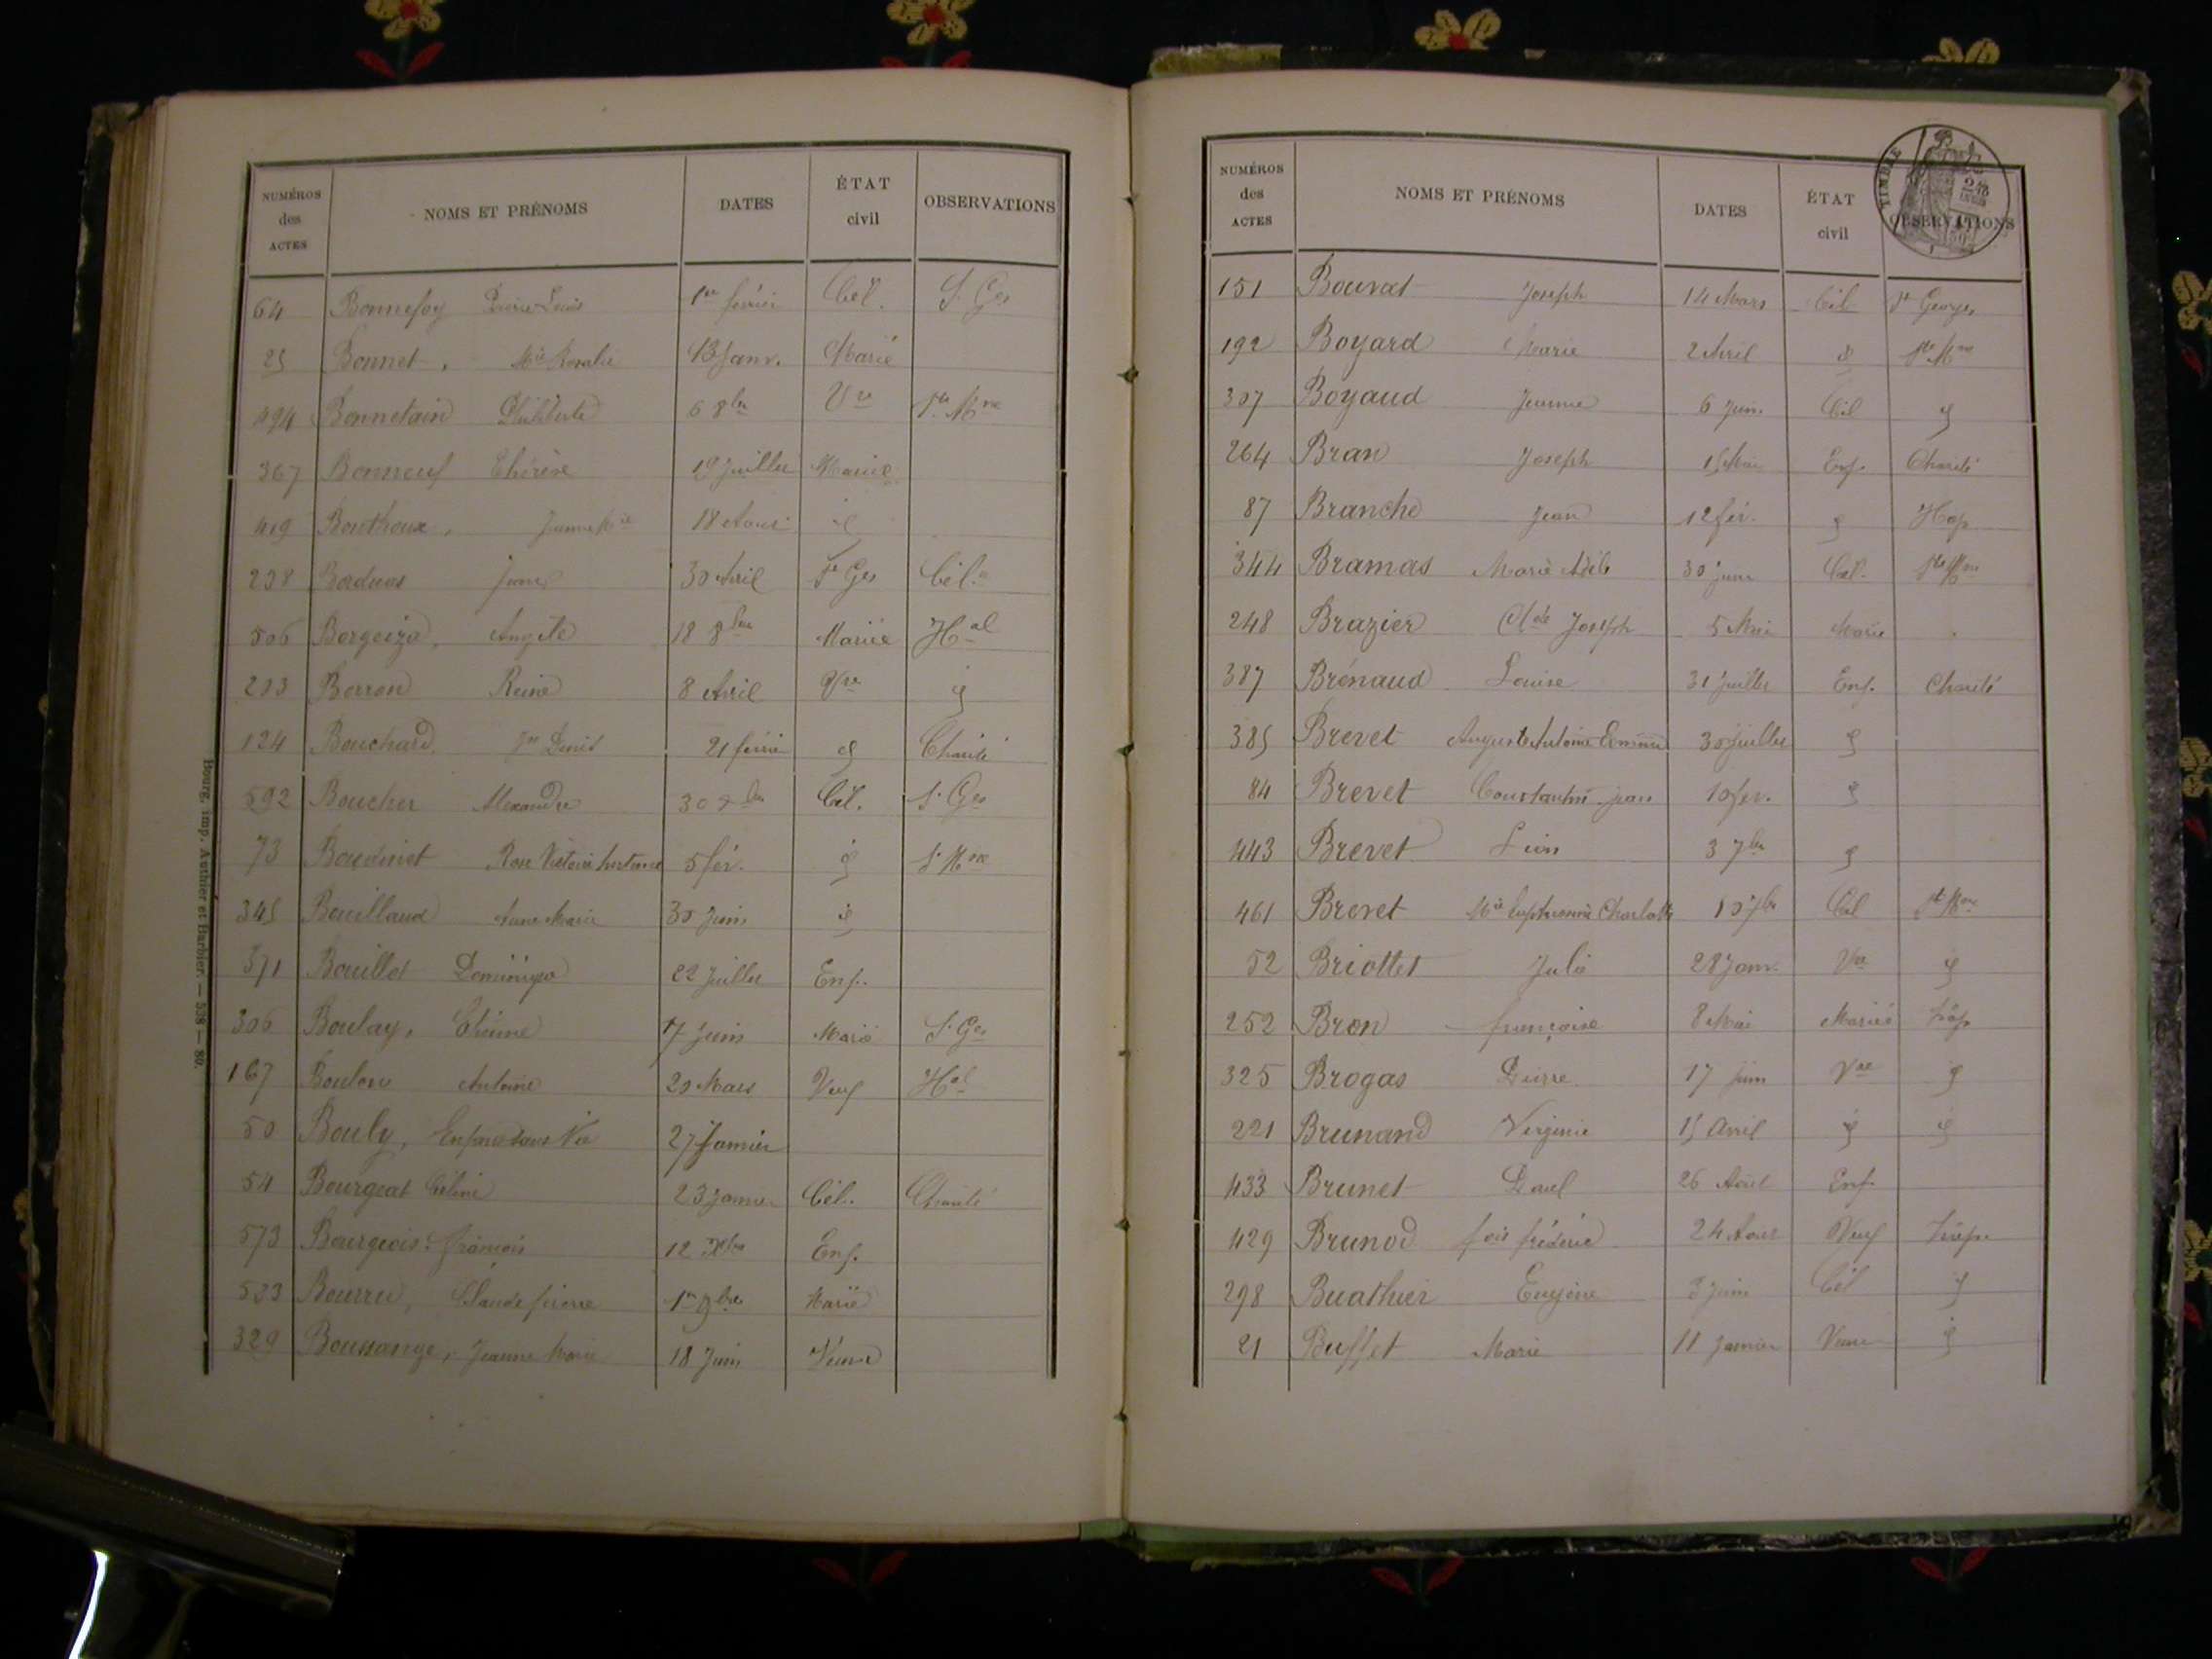 NUMÉROS des ACTES NOMS ET PRÉNOMS DATES ÉTAT civil OBSERVATIONS
64 Bonnefoy Pierre Louis 1er février Cél. St Ges
25 Bonnet, Mie Rosalie 13 Janv. Marié
494 Bonnetain Philiberte 6 8bre Vve Ste Mne
367 Bonneuf Thérèse 19 Juillet Mariée
419 Bonthoux, Jeanne Mie 18 Aout id
238 30 Avril St Ges Cél.
506 Angèle 18 8bre Mariée Hal
203 Borron Reine 8 Avril Vve id
124 Bouchard Jn Denis 21 février id Charité
592 Boucher Alexandre 30 Cél. St Ges
73 Rose Victoire 5 fév. id St Mne
345 Bouillaud Anne Marie 30 Juin id
371 Bouillot Dominique 22 Juillet Enf.
306 Boulay, Etienne 7 Juin Marié St Ges
167 Boulon Antoine 20 Mars Veuf Hal
50 Bouly, Enfant sans Vie 27 Janvier
54 Bourgeat Céline 23 Janvier Cél. Charité
573 Bourgeois François 12 Xbre Enf.
523 Bourru, Claude pierre 1er 9bre Marié
329 Boussange, Jeanne Marie 18 Juin Veuve
Bourg, imp. Authier et Barbier. — 538 — 80.
NUMÉROS des ACTES NOMS ET PRÉNOMS DATES ÉTAT civil OBSERVATIONS
TIMBRE
151 Bouvat Joseph 14 Mars Cél St Georges
192 Boyard Marie 2 Avril id Ste Mne
307 Boyaud Jeanne 6 Juin Cél id
264 Bran Joseph 15 Mai Enf. Charité
87 Branche Jean 12 fév. id Hop
344 Bramas Marie Adèle 30 juin Cél. Ste Mne
248 Brazier Clde Joseph 5 Mai Marié
387 Brénaud Louise 31 Juillet Enf. Charité
385 Brevet Auguste Antoine 30 Juillet id
84 Brevet Constantin jean 10 fev. id
443 Brevet Léon 3 7bre id
461 Brevet Mie Euphrosine Charlotte 10 7bre Cél Ste Mne
52 Briottet Julie 28 Janv. Vve id
252 Bron françoise 8 Mai Mariée hôp
325 Brogas Pierre 17 Juin Vve id
221 Brunand Virginie 15 Avril id id
433 Brunet Paul 26 Août Enf.
429 Brunod fois frédéric 24 Aout Veuf hôp.
298 Buathier Eugène 3 Juin Cél id
21 Buffet Marie 11 Janvier Veuve id